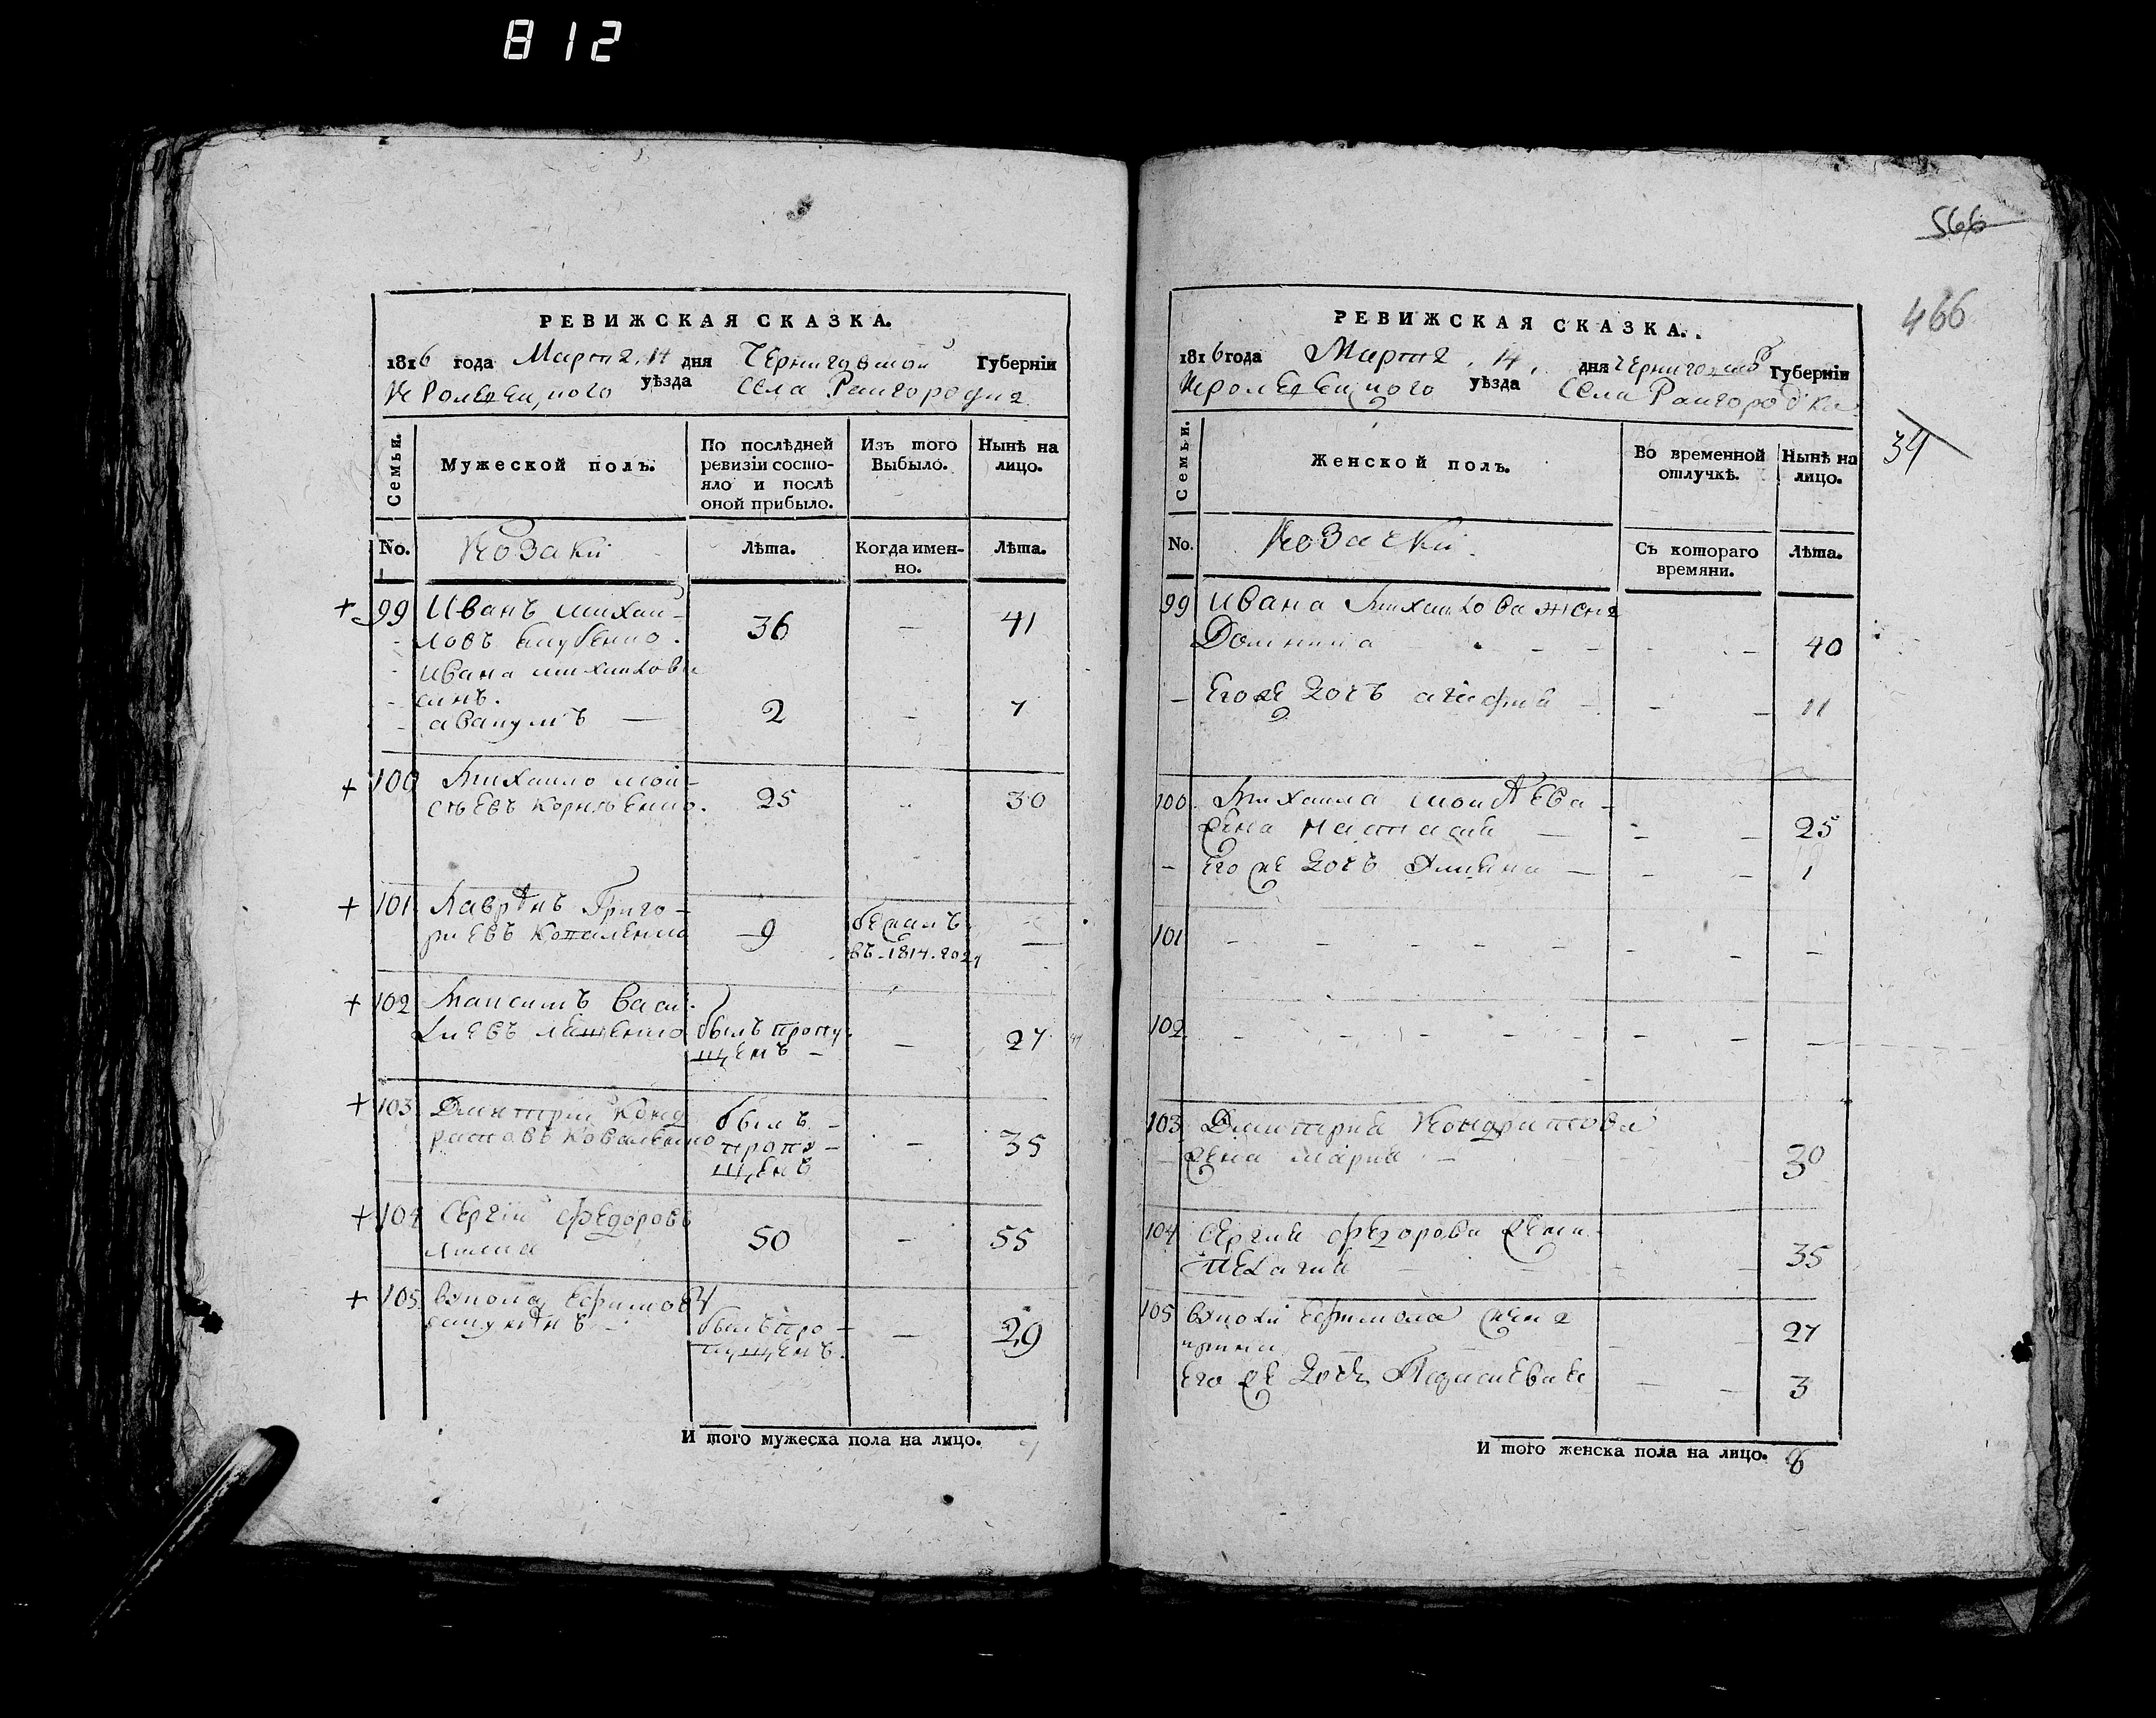 812
РЕВИЖСКАЯ СКАЗКА.
1816 года Марта 14 дня Черниговской Губерніи
Кролевецкого уѣзда Села Райгородка
Семьи.
Мужеской полъ.
По послѣдней ревизіи состо-
яло и послѣ
оной прибыло.
Изъ того
Выбыло.
Нынѣ на
лицо.
No.
Козаки
Лѣта.
Когда имен-
но.
Лѣта.
+ 99 Иванъ Михай-
ловъ 36 — 41
Ивана Михайлова
синъ.
авакумъ — 2 — 7
+ 100 Михаило Мои-
сѣевъ Корнѣенко. 25 30
+ 101 Лаврѣнъ Григо-
риевъ Коваленко 9 бежалъ
въ 1814 году —
+ 102 Максимъ Васи-
лиевъ былъ пропу-
щенъ — 27
+ 103 Дмитрий Конд
ратовъ Коваленко былъ
пропу-
щенъ — 35
+ 104 Сергій Федоровъ
50 — 55
+ 105 Ефимовъ
былъ про-
пущенъ. — 29
И того мужеска пола на лицо. 7
566
466
34
РЕВИЖСКАЯ СКАЗКА.
1816 года Марта 14 дня Черниговской Губерніи
Кролевецкого уѣзда Села Райгородка
Семьи.
Женской полъ.
Во временной
отлучкѣ.
Нынѣ на
лицо.
No.
Козачки
Съ котораго
времяни.
Лѣта.
99 Ивана Михайлова жена
Домникиа 40
Его же дочъ агафия 11
100 Михаила Моисѣева
жена Настасия 25
Его же дочъ 1
101
102
103 Дмитрия Кондратова
жена Мария 30
104 Сергия Федорова жена
Пелагия 35
105 Ефимова жена
ирина 27
Его же дочъ 3
И того женска пола на лицо. 8